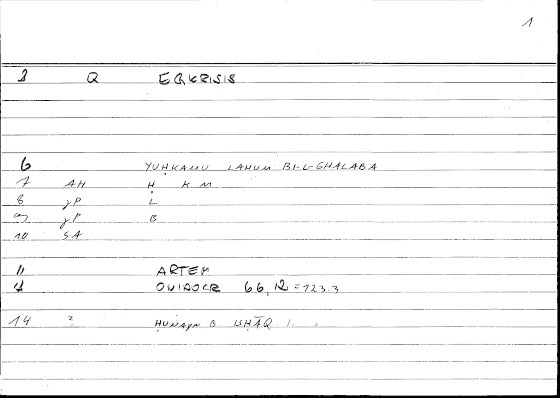 1
Q EGKRISIS
6 YUḤKAMU LAHUM BI-L-GHALABA
7 AH Ḥ K M
8 L
9 B
10 SA
11 ARTEM
66,12 = 123.3
14 ? ḤUNAYN B. ISḤĀQ